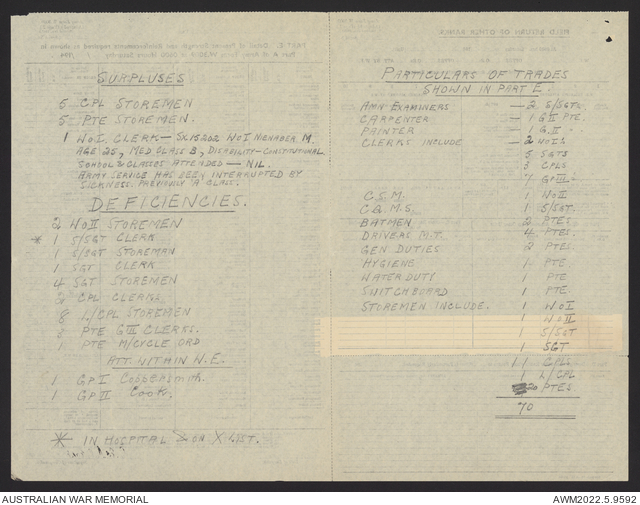 SURPLUSES
5 CPL STOREMEN
5 PTE STOREMEN.
1 WOI. CLERK — SX15202 WOI NENABER M.
AGE 25, MED CLASS B, DISABILITY — CONSTITUTIONAL
SCHOOL & CLASSES ATTENDED — NIL.
ARMY SERVICE HAS BEEN INTERRUPTED BY
SICKNESS. PREVIOUSLY 'A' CLASS.
DEFICIENCIES.
2 WOII STOREMEN
* 1 S/SGT CLERK
1 S/SGT STOREMAN
1 SGT CLERK
4 SGT STOREMEN
2 CPL CLERKS
8 L/CPL STOREMEN
8 PTE GIII CLERKS.
1 PTE M/CYCLE ORD
ATT. WITHIN W.E.
1 GP I Coppersmith.
1 GP II Cook.
* — IN HOSPITAL & ON X LIST.
FIELD RETURN OF OTHER RANKS
PARTICULARS OF TRADES
SHOWN IN PART E.
AMN EXAMINERS — 2 S/SGTS
CARPENTER — 1 GII PTE.
PAINTER — 1 G.II "
CLERKS INCLUDE — 2 WOI'S
5 SGTS
3 CPLS
7 GPIII'S
C.S.M. 1 WOII
C.Q.M.S. 1 S/SGT.
BATMEN 2 PTES
DRIVERS M.T. 4 PTES.
GEN DUTIES 2 PTES
HYGIENE 1 PTE
WATER DUTY 1 PTE
SWITCHBOARD 1 PTE
STOREMEN INCLUDE. 1 WOI
1 WOII
1 S/SGT
1 SGT
11 CPLS
1 L/CPL
20 PTES
70
AUSTRALIAN WAR MEMORIAL
AWM2022.5.9592